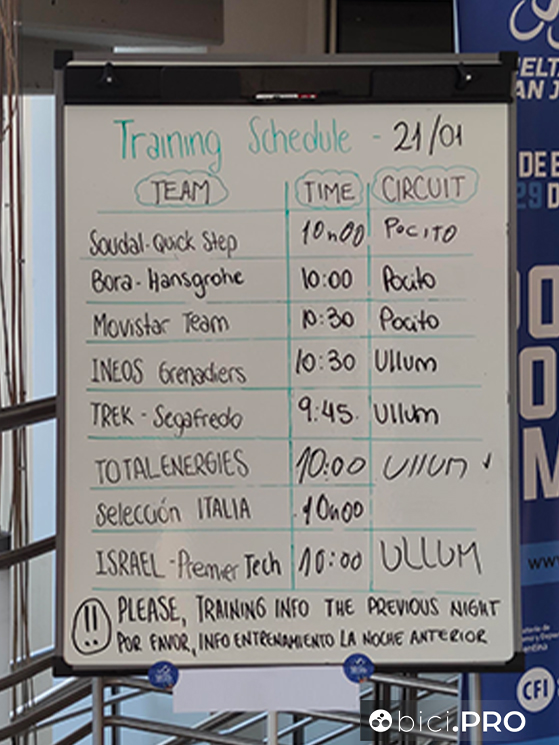 Training Schedule - 21/01
TEAM TIME CIRCUIT
Soudal-Quick Step 10h00 POCITO
Bora-Hansgrohe 10:00 Pocito
Movistar Team 10:30 Pocito
INEOS Grenadiers 10:30 Ullum
TREK - Segafredo 9:45. Ullum
TOTALENERGIES 10:00 Ullum
Selección ITALIA 10h00
ISRAEL-Premier Tech 10:00 ULLUM
!! PLEASE, TRAINING INFO THE PREVIOUS NIGHT
POR FAVOR, INFO ENTRENAMIENTO LA NOCHE ANTERIOR
DE E
29 D
www
CFI
bici.PRO